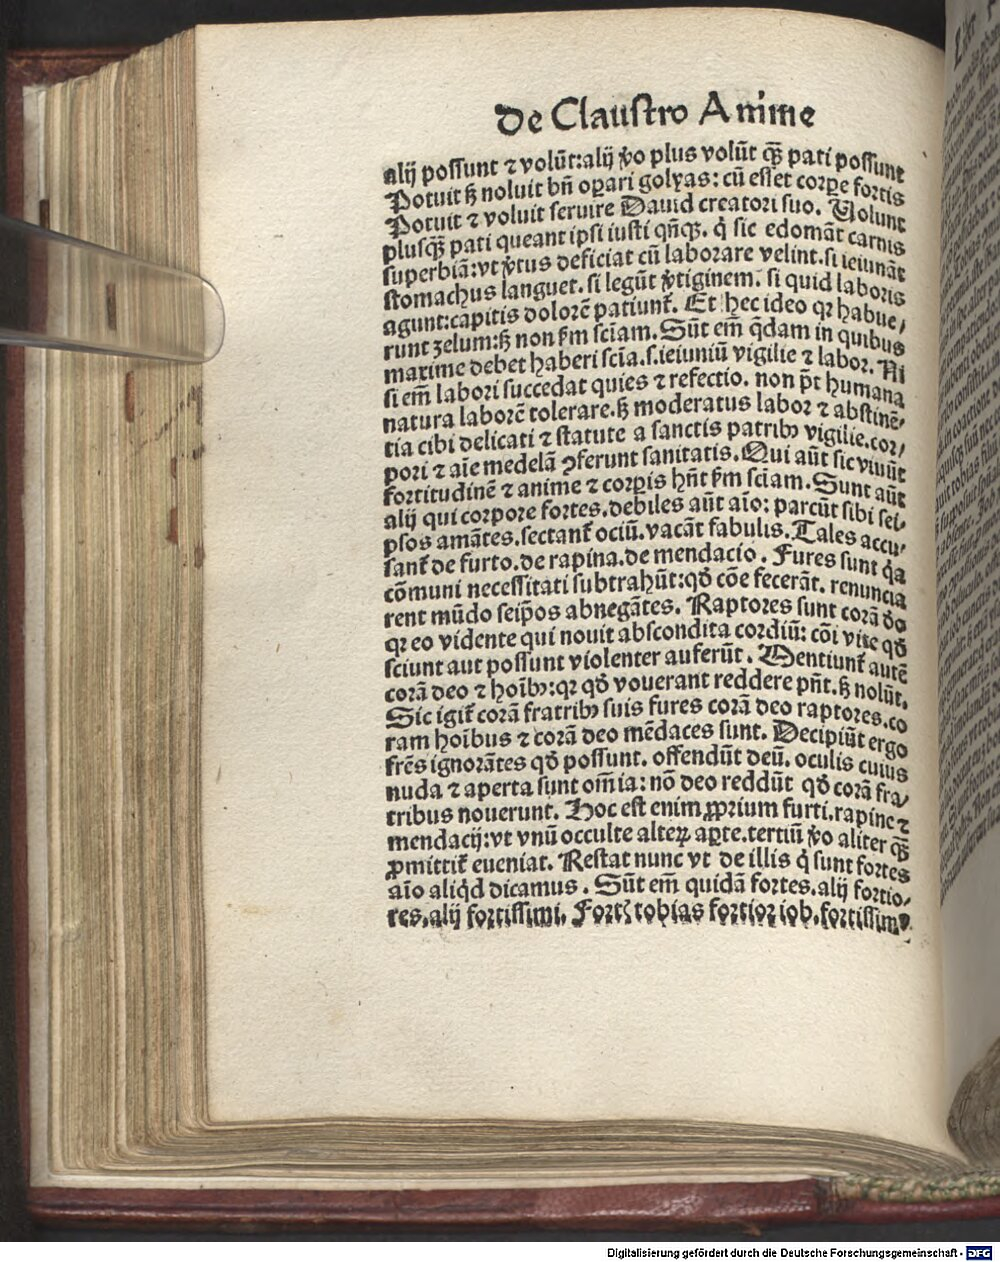 De Claustro Anime
alij possunt ⁊ volūt: alij ꝟo plus volūt qȝ̄ pati possunt
Potuit sȝ noluit bñ oꝑari golyas: cū esset corꝑe fortis
Potuit ⁊ voluit seruire Dauid creatori suo. Uolunt
plusqȝ̄ pati queant ipsi iusti qñqȝ. q̇ sic edomāt carnis
superbiā: vt ꝟtus deficiat cū laborare velint. si ieiunāt
stomachus languet. si legūt ꝟtiginem. si quid laboris
agunt: capitis dolorē patiunt᷑. Et hec ideo qꝛ habue/
runt zelum: sȝ non ẜm sciam. Sūt em̄ q̇dam in quibus
maxime debet haberi scīa. s. ieiuniū vigilie ⁊ labor. Ni
si em̄ labori succedat quies ⁊ refectio. non pōt humana
natura laborē tolerare. sȝ moderatus labor ⁊ abstinē/
tia cibi delicati ⁊ statute a sanctis patribꝰ vigilie. cor/
pori ⁊ aīe medelā ꝯferunt sanitatis. Qui aūt sic viuūt
fortitudinē ⁊ anime ⁊ corꝑis hñt ẜm sciam. Sunt aūt
alij qui corpore fortes. debiles aūt aīo: parcūt sibi sei/
psos amātes. sectant᷑ ociū. vacāt fabulis. Tales accu/
sant᷑ de furto. de rapina. de mendacio. Fures sunt q̇a
cōmuni necessitati subtrahūt: qđ cōe fecerāt. renuncia
rent mūdo seip̄os abnegātes. Raptores sunt corā đo
qꝛ eo vidente qui nouit abscondita cordiū: cōi vite qđ
sciunt aut possunt violenter auferūt. Mentiunt᷑ autē
corā deo ⁊ hoībꝰ: qꝛ qđ vouerant reddere pñt. sȝ nolūt.
Sic igit᷑ corā fratribꝰ suis fures corā deo raptores. co
ram hoībus ⁊ corā deo mēdaces sunt. Decipiūt ergo
frēs ignorātes qđ possunt. offendūt deū. oculis cuius
nuda ⁊ aperta sunt om̄ia: nō deo reddūt qđ corā fra/
tribus nouerunt. Hoc est enim ꝓprium furti. rapine ⁊
mendacij: vt vnū occulte alteꝝ aꝑte. tertiū ꝟo aliter qȝ̄
ꝓmittit᷑ eueniat. Restat nunc vt de illis q̇ sunt fortes
aīo aliq̇d dicamus. Sūt em̄ quidā fortes. alij fortio/
res. alij fortissimi. Fortꝭ tobias fortior iob. fortissimꝰ
Digitalisierung gefördert durch die Deutsche Forschungsgemeinschaft - DFG